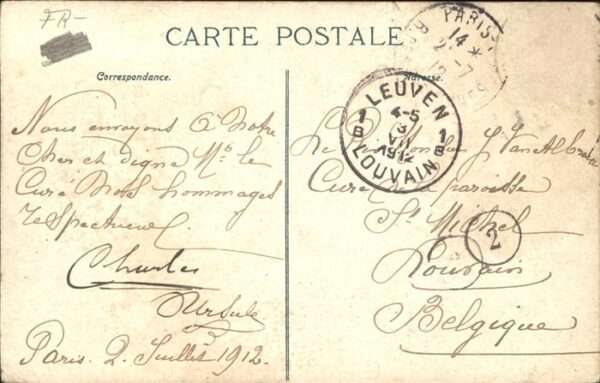 FR-
CARTE POSTALE
Correspondance.
Adresse.
PARIS
14 *
2 -7
LEUVEN
4-5
3
VII
1912
1B 1B
LOUVAIN
Nous envoyons à Notre
Cher et digne Mr le
Curé Nos hommages
respectueux
Charles
Ursule
Paris. 2 Juillet 1912.
J. Van
Curé paroisse
St Michel
Louvain
Belgique
2